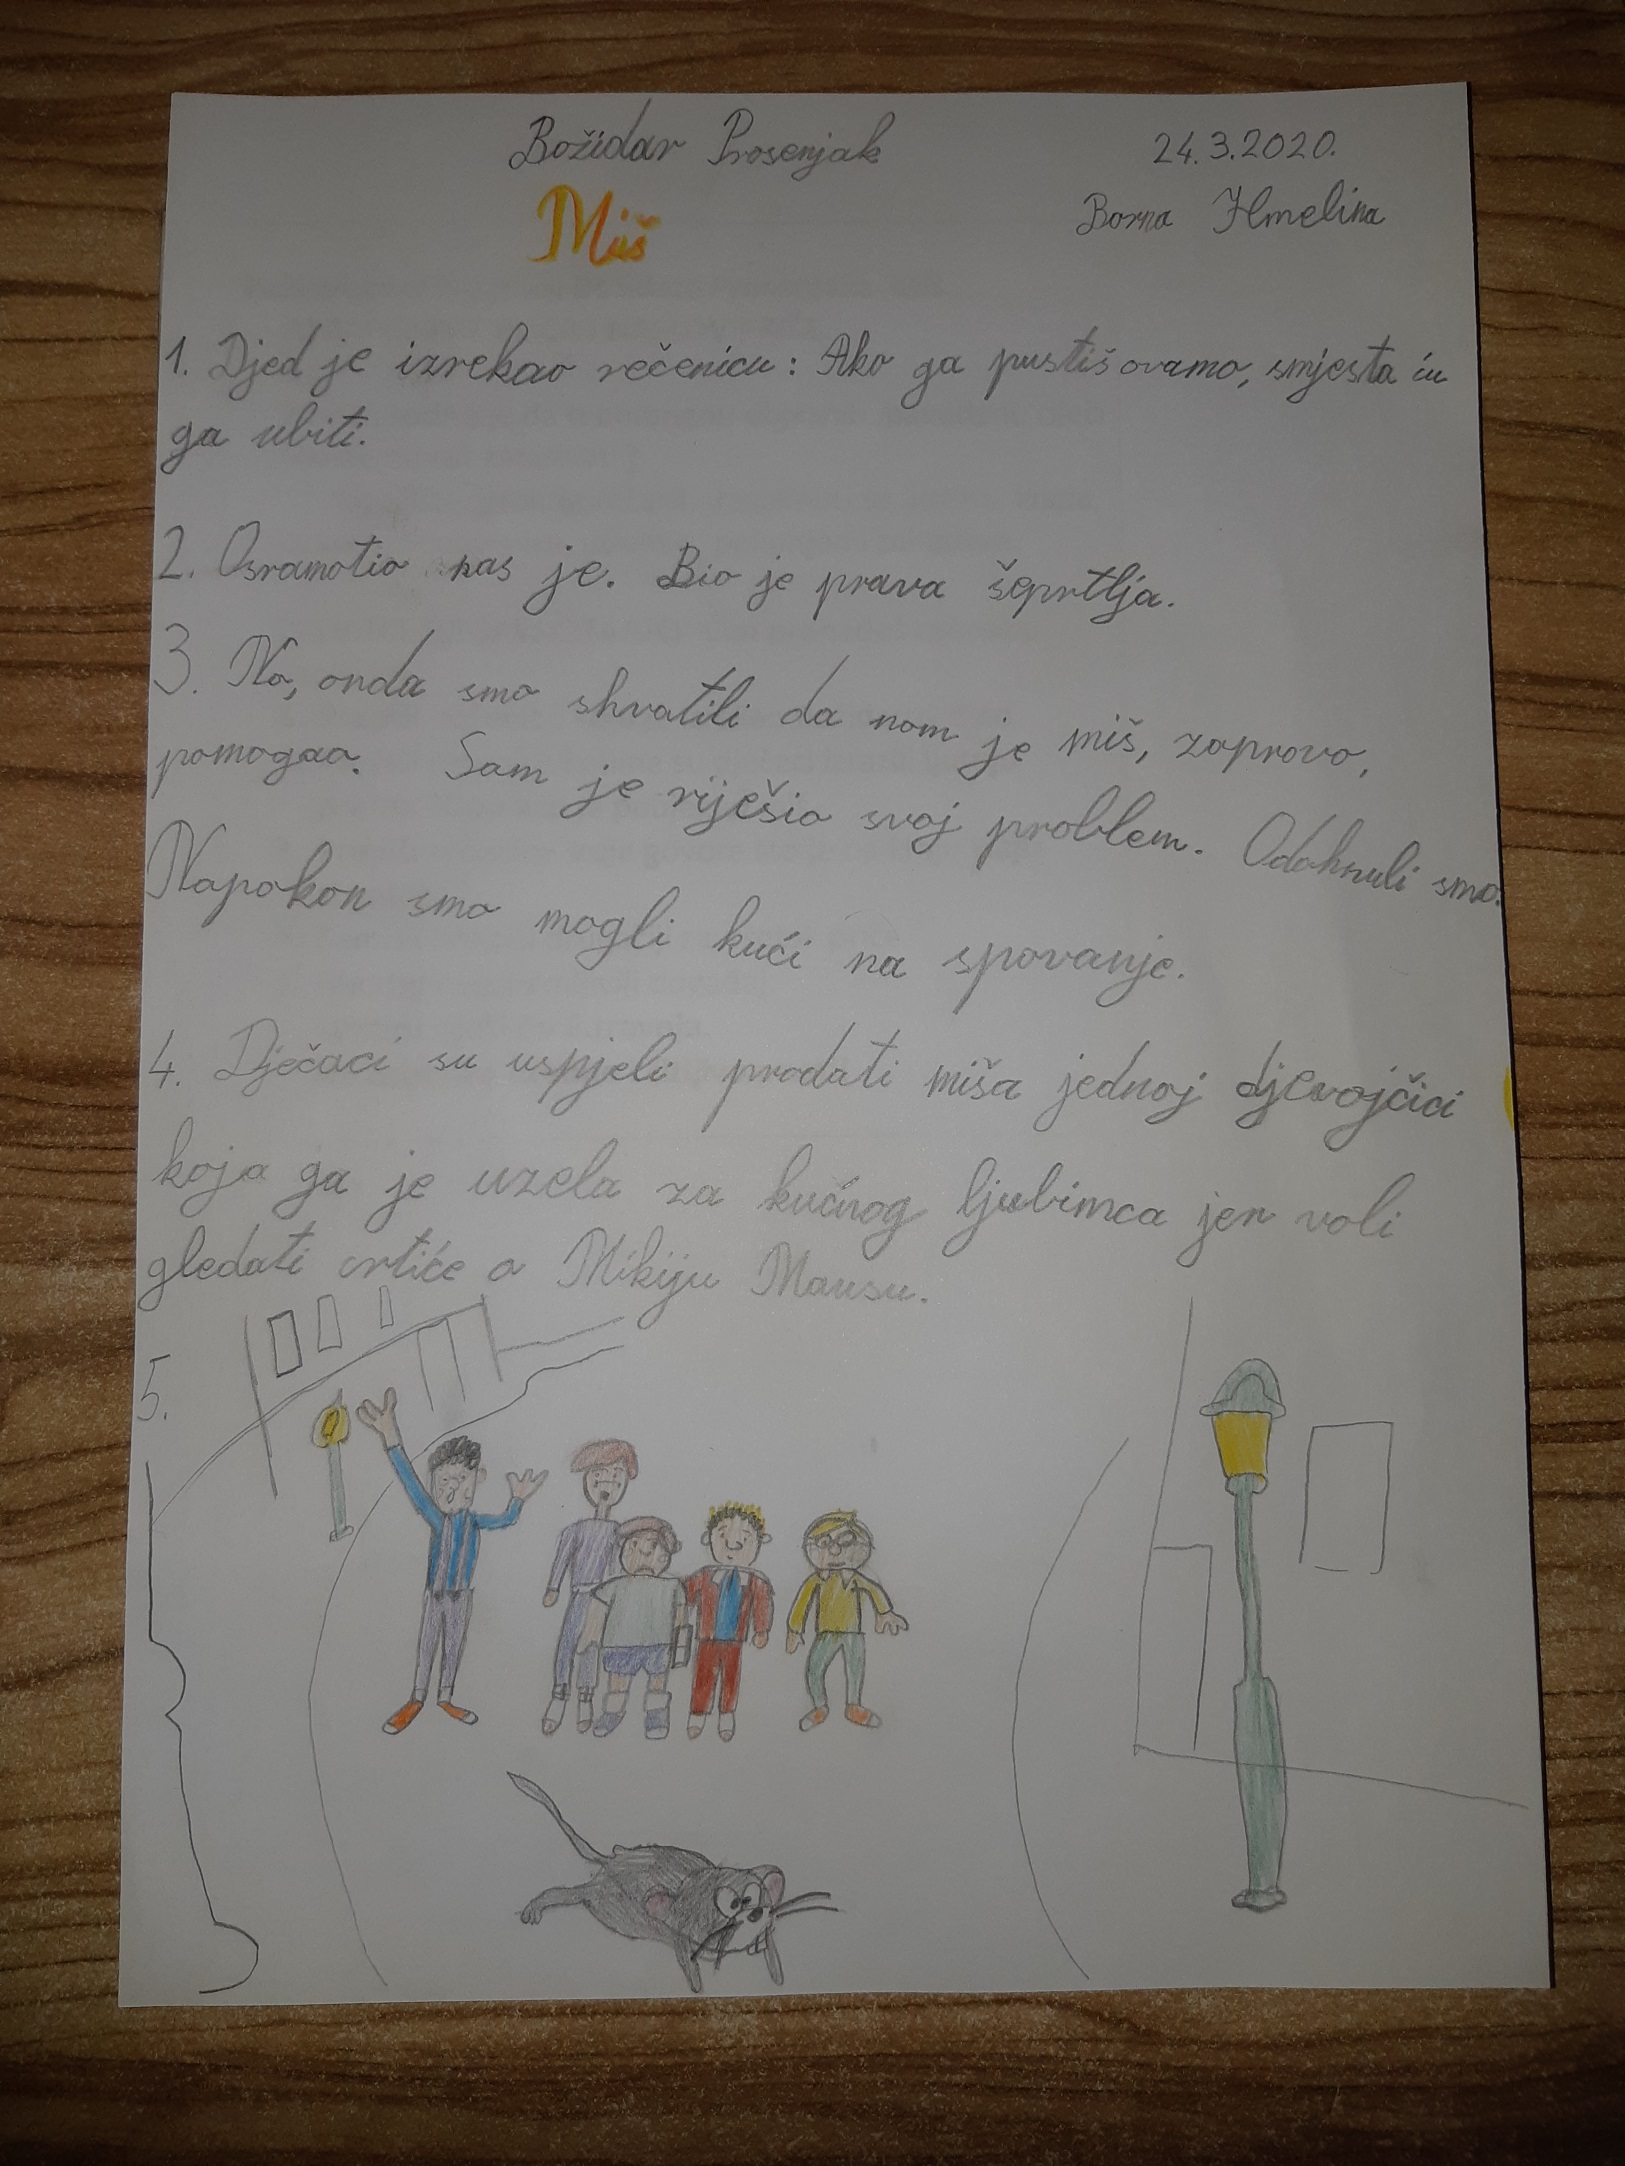 Božidar Prosenjak
24.3.2020.
Miš
Borna Hmelina
1. Djed je izrekao rečenicu: Ako ga pustiš ovamo, smjesta ću
ga ubiti.
2. Osramotio nas je. Bio je prava šeprtlja.
3. No, onda smo shvatili da nam je miš, zapravo,
pomogao. Sam je riješio svoj problem. Odahnuli smo.
Napokon smo mogli kući na spavanje.
4. Dječaci su uspjeli prodati miša jednoj djevojčici
koja ga je uzela za kućnog ljubimca jer voli
gledati crtiće o Mikiju Mausu.
5.